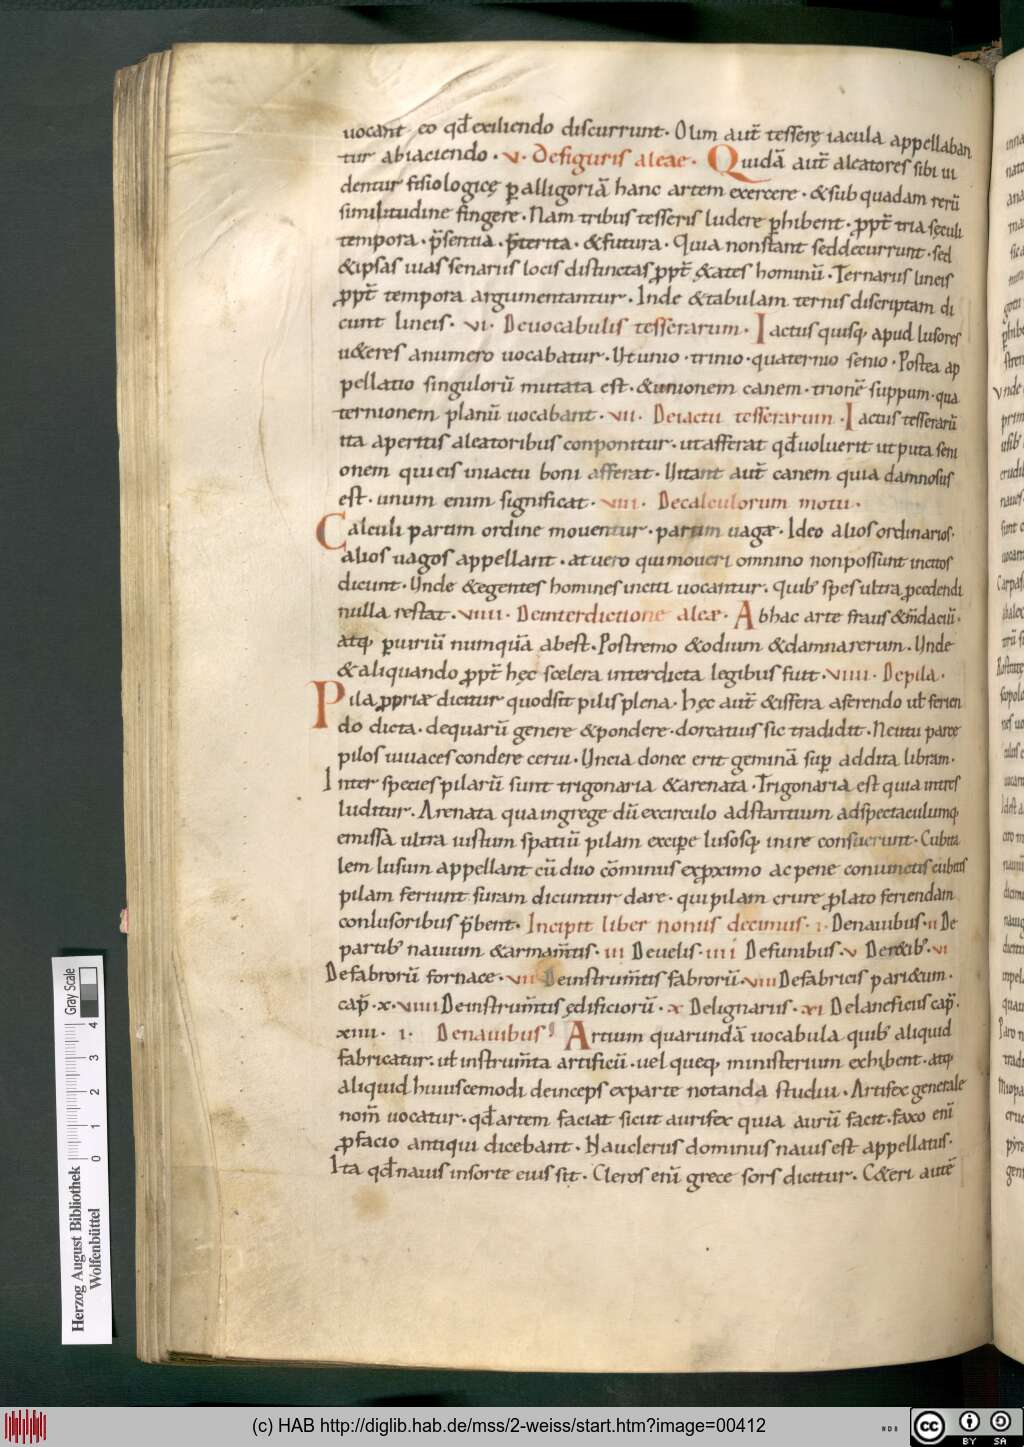 uocant eo qđ exiliendo discurrunt. Olim aut̄ tesserę iacula appellaban
tur abiaciendo. v. Defiguris aleae. Quidā aut̄ aleatores sibi ui
dentur fisiologicę p̲ alligoriā hanc artem exercere. & sub quadam rerū
similitudine fingere. Nam tribus tesseris ludere p̲hibent. p̲pt̄ tria sęculi
tempora. p̄sentia. p̄terita. & futura. Quia nonstant seddecurrunt. sed
&ipsas uias senarius locis distinctas p̲pt̄ &ates hominū. Ternarius lineis
p̲pt̄ tempora argumentantur. Inde &tabulam ternis discriptam di
cunt lineis. vi. Deuocabulis tesserarum. Iactus quisq. apud lusores
u&eres anumero uocabatur. Ut unio. trinio. quaternio senio. Postea ap
pellatio singulorū mutata est. &unionem canem. trionē suppum. qua
ternionem planū uocabant. vii. Deiactu tesserarum. Iactus tesserarū
ita aperitis aleatoribus conponitur. utafferat qđ uoluerit ut puta seni
onem qui eis iniactu boni afferat. Uitant aut̄ canem quia damnosus
est. unum enim significat. viii. Decalculorum motu.
Calculi partim ordine mouentur. partim uagæ. Ideo alios ordinarios.
alios uagos appellant. atuero qui moueri omnino nonpossunt incitos
dicunt. Unde &egentes homines inciti uocantur. quib' spes ultra p̲cedendi
nulla restat. viiii. Deinterdictione aleæ. Abhac arte fraus &m̄daciū.
atq. p̲iuriū numquā abest. Postremo &odium &damnarerum. Unde
&aliquando p̲pt̄ hęc scelera interdicta legibus fuit. viiii. Depila.
Pila p̲priæ dicitur quodsit pilis plena. hęc aut̄ &isfera aferendo ut̄ ferien
do dicta. dequarū genere &pondere. dorcatius sic tradidit. Neutu parce
pilos uiuaces condere cerui. Uncia donec erit geminā sup̲ addita libram.
Inter species pilarū sunt trigonaria &arenata. Trigonaria est quia intres
luditur. Arenata qua ingrege dū excirculo adstantium adspectaculumq.
emissa ultra iustum spatiū pilam excipe lusosq. inire consuerunt. Cubita
lem lusum appellant cū duo cōminus exp̲ximo acpene coniunctis cubitis
pilam feriunt suram dicuntur dare. qui pilam crure p̲lato feriendam
conlusoribus p̄bent. Incipit liber nonus decimus. i. Denauibus. ii De
partib' nauium &armam̄tis. iii Deuelis. iiii Defunibus. v Der&ib'. vi
Defabrorū fornace. vii Deinstrum̄tis fabrorū. viii Defabricis pari&um.
cap̄. x. viiii Deinstrum̄tis ędificiorū. x Delignarius. xi Delaneficius cap̄.
xiiii. i. Denauibus Artium quarundā vocabula quib' aliquid
fabricatur. ut̄ instrum̄ta artificū. uel queq. ministerium exhibent. atq.
aliquid huiuscemodi deinceps exparte notanda studui. Artifex generale
nom̄ uocatur. qđ artem faciat sicut aurifex quia aurū facit. faxo enī
p̲facio antiqui dicebant. Nauclerus dominus nauis est appellatus.
Ita qđ nauis insorte eius sit. Cleros enī grece sors dicitur. C&eri autē
Gray Scale
0 1 2 3 4
Herzog August Bibliothek
Wolfenbüttel
(c) HAB http://diglib.hab.de/mss/2-weiss/start.htm?image=00412
cc BY SA